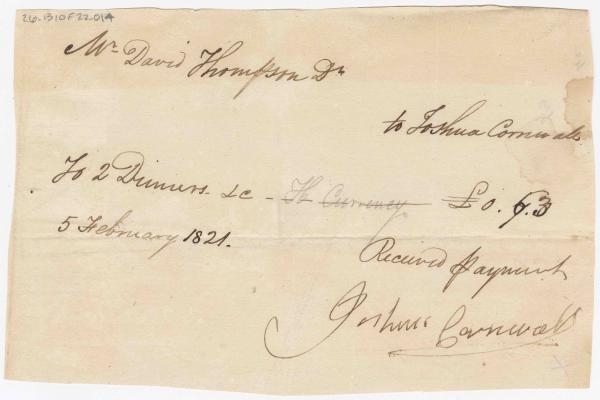 26.B10F22.014
Mr David Thompson Dr
to Joshua Cornwall
To 2 Dinners &c - Currency £0.6.3
5 February 1821.
Received payment
Joshua Cornwall